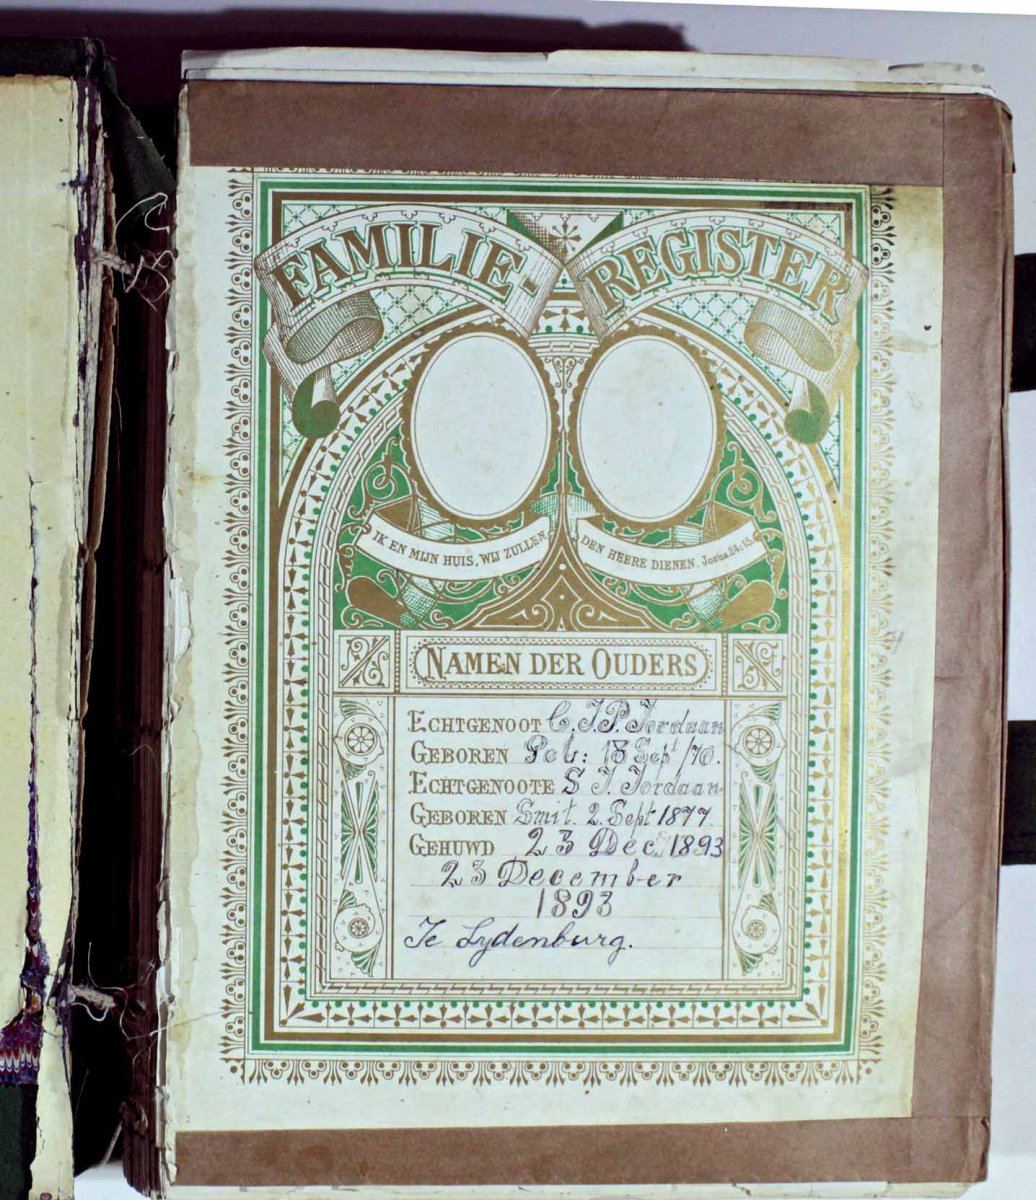 FAMILIE-REGISTER
IK EN MIJN HUIS, WIJ ZULLEN DEN HEERE DIENEN. Jozua 24:15.
NAMEN DER OUDERS
ECHTGENOOT C. J. P. Jordaan
GEBOREN Pet: 18 Sept /70.
ECHTGENOOTE S J. Jordaan
GEBOREN Smit. 2. Sept 1877.
GEHUWD 23 Dec. 1893
23 December
1893
Te Lydenburg.